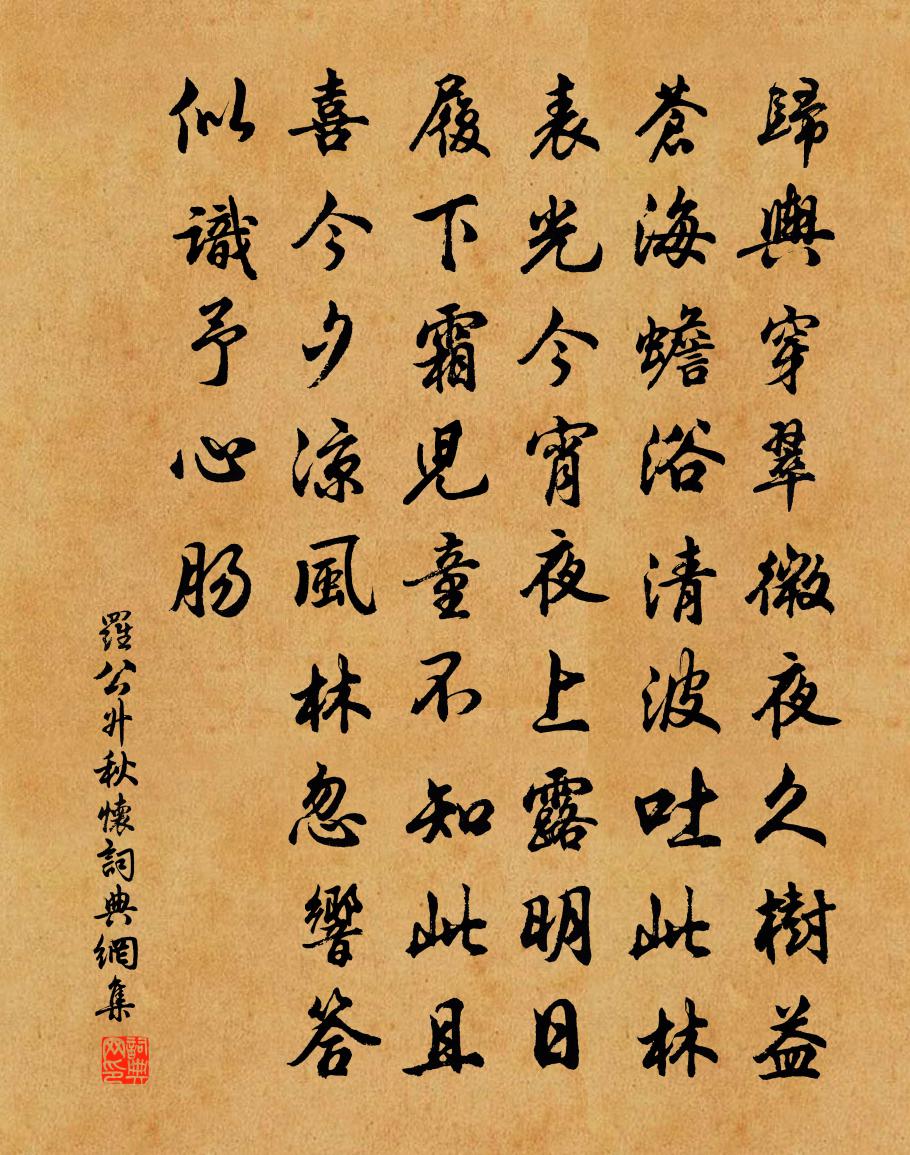 歸輿穿翠微夜久樹益
蒼海蟾浴清波吐此林
表光今宵夜上露明日
履下霜兒童不知此且
喜今夕涼風林忽響答
似識予心腸
羅公升秋懷詞典網集
詞典网印